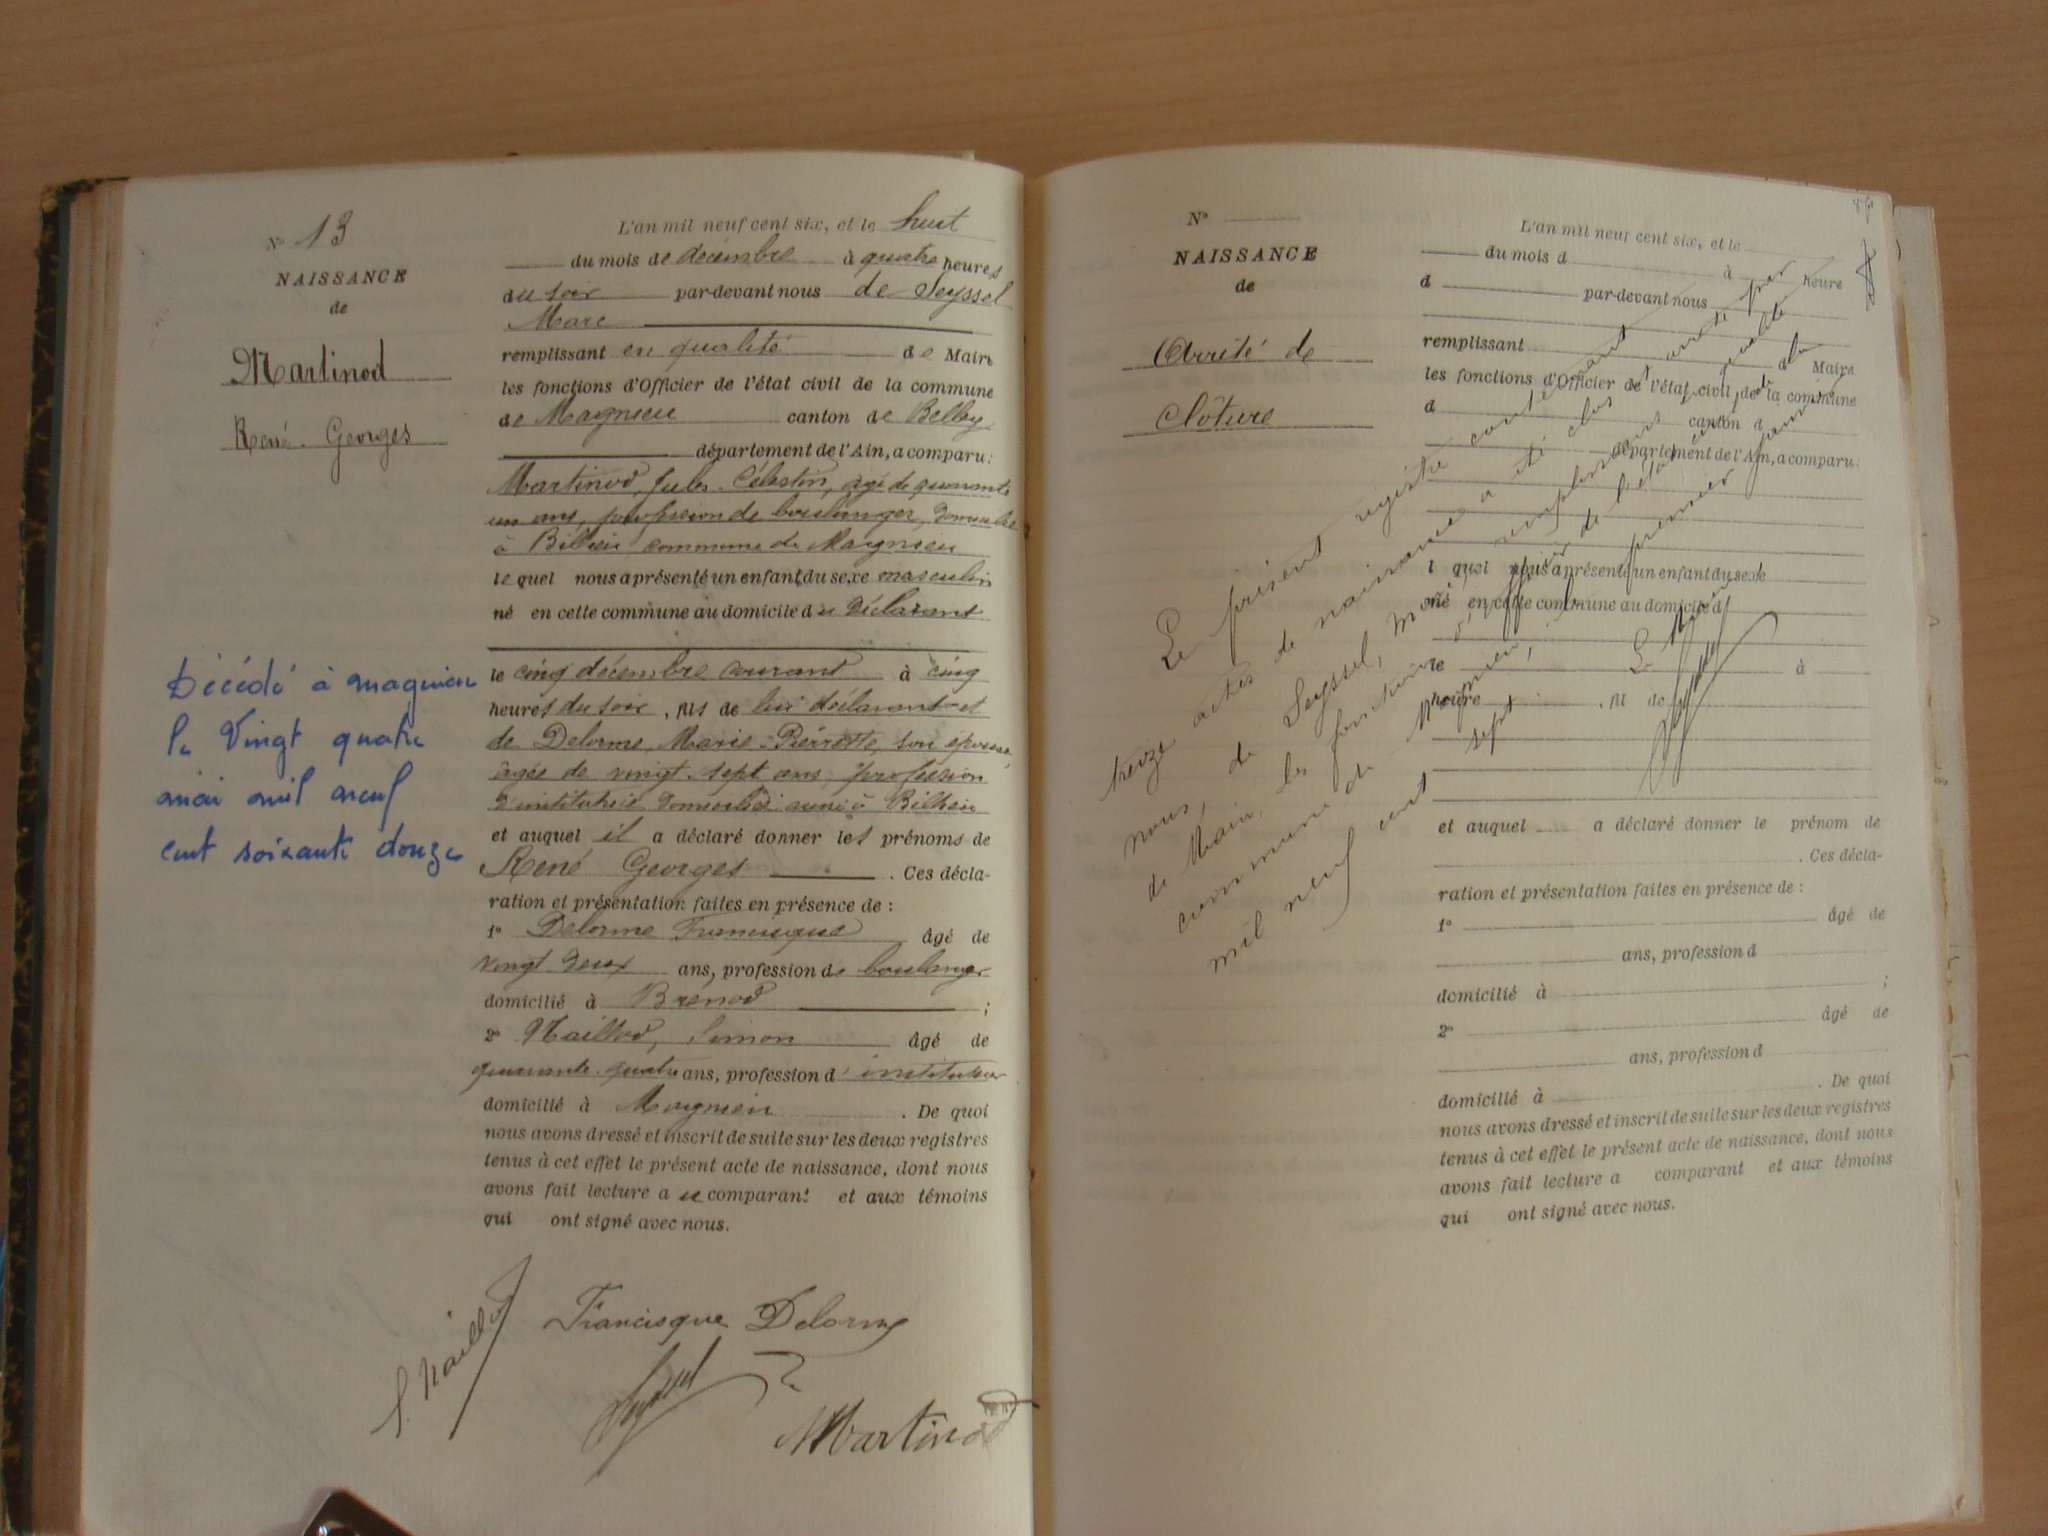 N° 13
NAISSANCE
de
Martinod
René-Georges
Décédé à magnieu
le Vingt quatre
mai mil neuf
cent soixante douze
L'an mil neuf cent six, et le huit
du mois de décembre à quatre heures
du soir par-devant nous de Seyssel
Marc
remplissant en qualité de Maire
les fonctions d'Officier de l'état civil de la commune
de Magnieu canton de Belley
département de l'Ain, a comparu:
Martinod, Jules Célestin, âgé de quarante
un ans, profession de boulanger, domicilié
à Billieu commune de Magnieu
lequel nous a présenté un enfant du sexe masculin
né en cette commune au domicile du Déclarant
le cinq décembre courant à cinq
heures du soir, fils de lui déclarant et
de Delorme, Marie-Pierrette, son épouse,
âgée de vingt-sept ans, profession
d'institutrice domiciliée aussi à Billieu
et auquel il a déclaré donner les prénoms de
René Georges. Ces décla-
ration et présentation faites en présence de :
1° Delorme Francisque âgé de
vingt-deux ans, profession de boulanger
domicilié à Brénod ;
2° Naillod, Simon âgé de
quarante-quatre ans, profession d'instituteur
domicilié à Magnieu. De quoi
nous avons dressé et inscrit de suite sur les deux registres
tenus à cet effet le présent acte de naissance, dont nous
avons fait lecture au comparant et aux témoins
qui ont signé avec nous.
S. Naillod
Francisque Delorme
Seyssel
Martinod
N°
NAISSANCE
de
Arrêté de
Clôture
L'an mil neuf cent six, et le
du mois d à heure
d par-devant nous
remplissant d Maire
les fonctions d'Officier de l'état civil de la commune
d canton d
département de l'Ain, a comparu:
l quel nous a présenté un enfant du sexe
né en cette commune au domicile d
le à
heure, fil de
et auquel a déclaré donner le prénom de
. Ces décla-
ration et présentation faites en présence de :
1° âgé de
ans, profession d
domicilié à ;
2° âgé de
ans, profession d
domicilié à . De quoi
nous avons dressé et inscrit de suite sur les deux registres
tenus à cet effet le présent acte de naissance, dont nous
avons fait lecture a comparant et aux témoins
qui ont signé avec nous.
Le présent registre contenant
treize actes de naissance a été clos et arrêté par
nous, de Seyssel, Marc, remplissant en qualité
de Maire, les fonctions d'officier de l'état civil de la
commune de Magnieu, le premier janvier
mil neuf cent sept
Le Maire
Seyssel